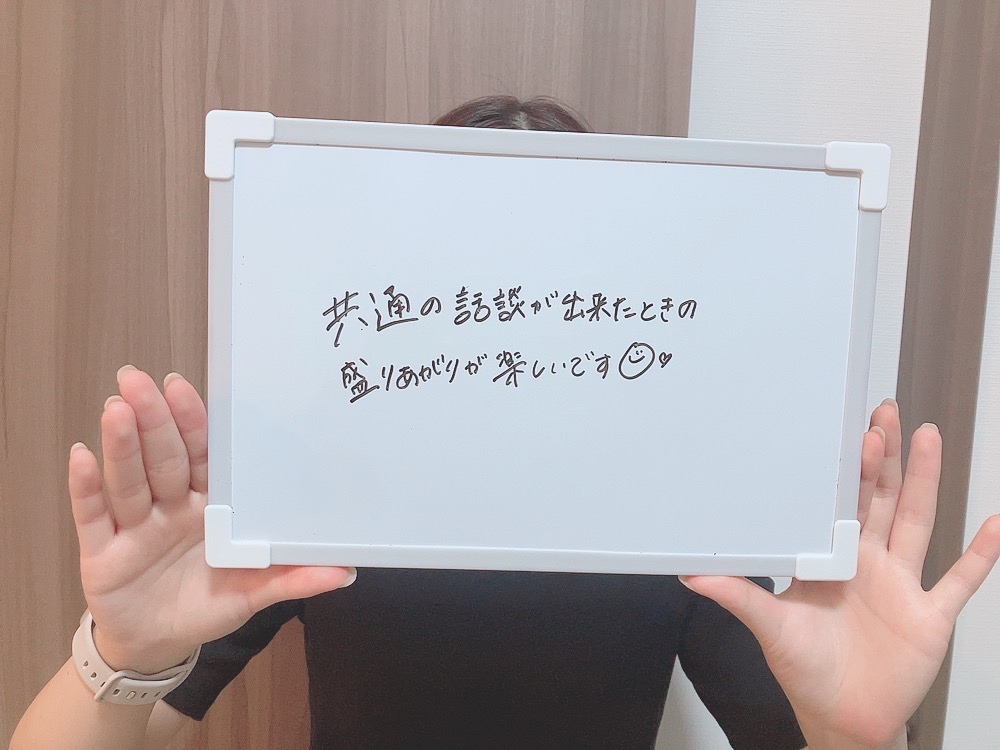 共通の話談が出来たときの
盛りあがりが楽しいです☺♡